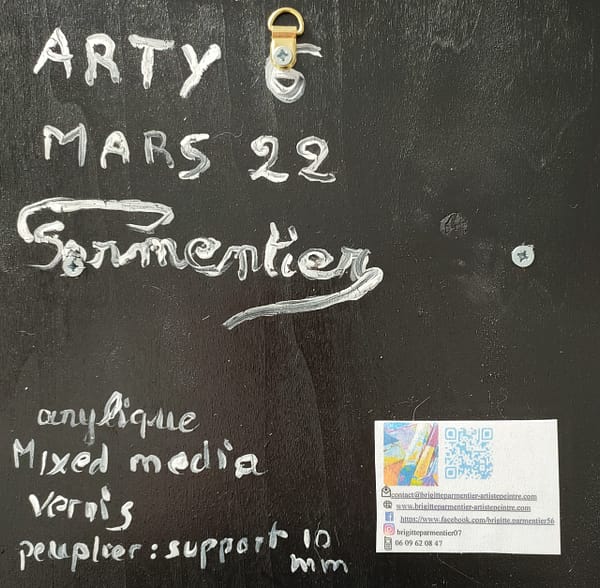 ARTY 5
MARS 22
Parmentier
acrylique
Mixed media
vernis
peuplier : support 10 mm
contact@brigitteparmentier-artistepeintre.com
www.brigitteparmentier-artistepeintre.com
https://www.facebook.com/brigitte.parmentier56
brigitteparmentier07
06 09 62 08 47